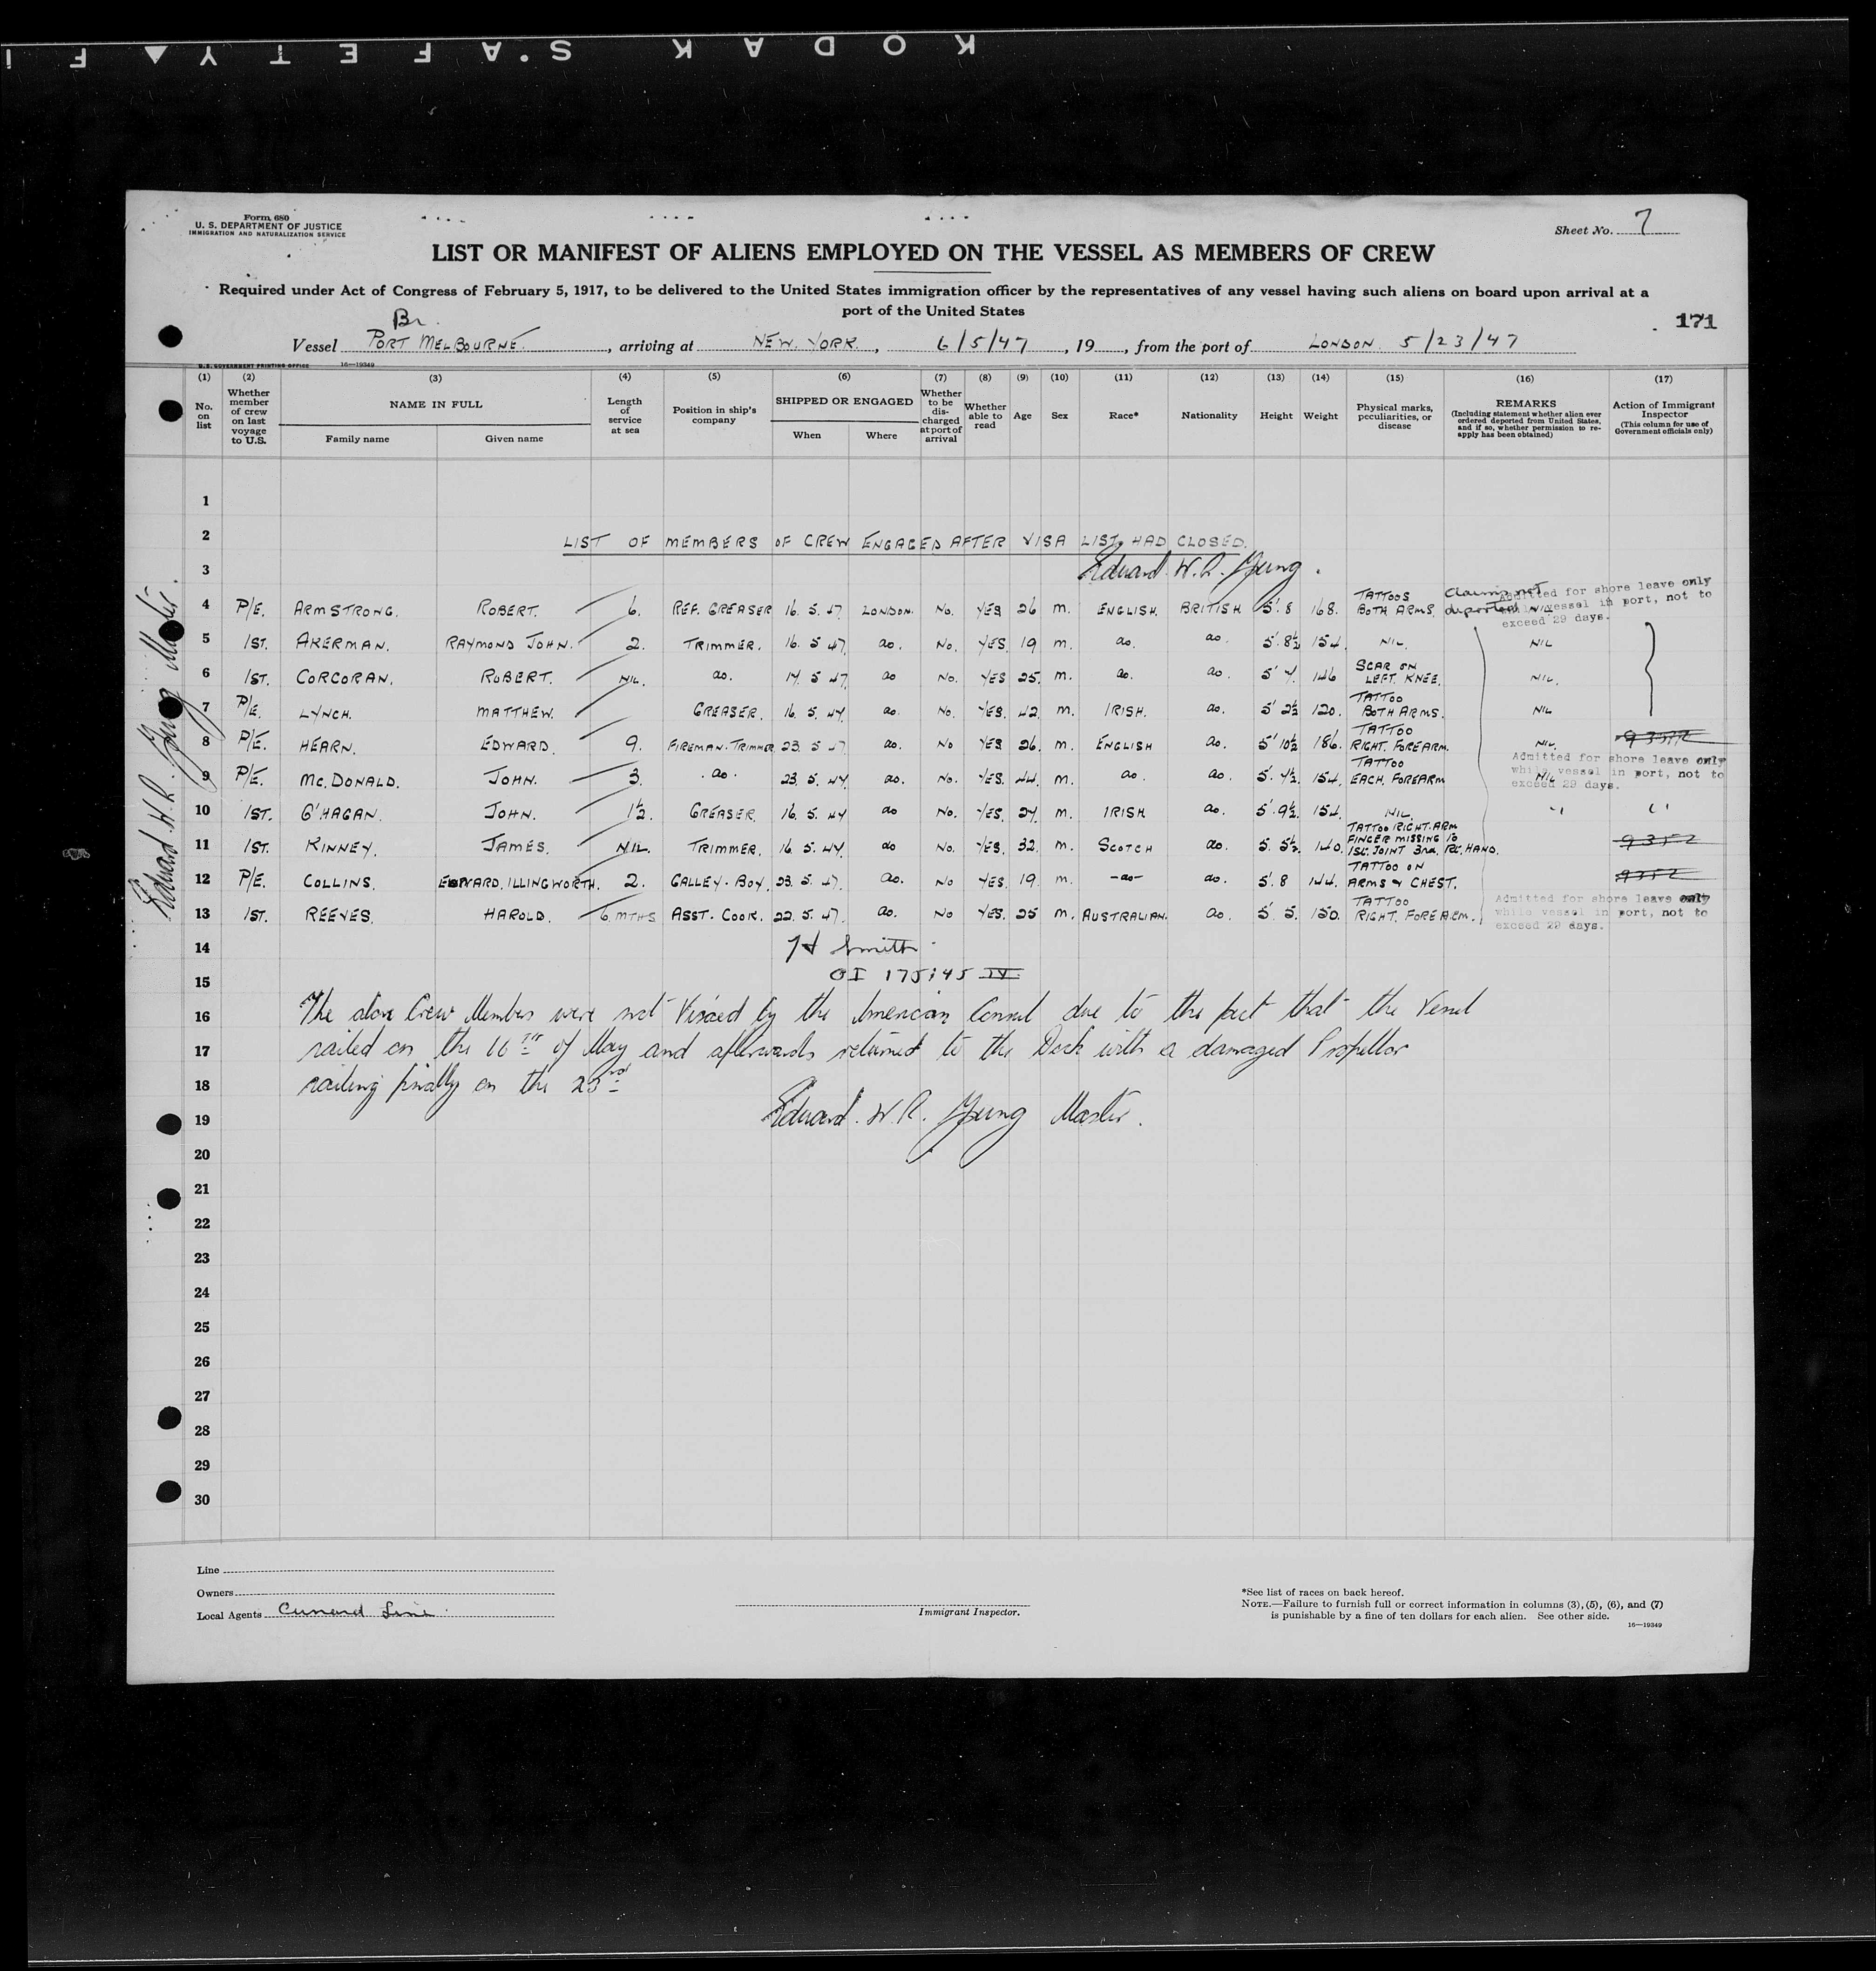 KODAK SAFETY FI
Form 680
U. S. DEPARTMENT OF JUSTICE
IMMIGRATION AND NATURALIZATION SERVICE
Sheet No. 7
LIST OR MANIFEST OF ALIENS EMPLOYED ON THE VESSEL AS MEMBERS OF CREW
Required under Act of Congress of February 5, 1917, to be delivered to the United States immigration officer by the representatives of any vessel having such aliens on board upon arrival at a
port of the United States
171
Br.
Vessel PORT MELBOURNE, arriving at NEW YORK, 6/5/47, 19, from the port of LONDON 5/23/47
U.S. GOVERNMENT PRINTING OFFICE 16—19349
(1) (2) (3) (4) (5) (6) (7) (8) (9) (10) (11) (12) (13) (14) (15) (16) (17)
No. on list
Whether member of crew on last voyage to U.S.
NAME IN FULL
Family name Given name
Length of service at sea
Position in ship's company
SHIPPED OR ENGAGED
When Where
Whether to be discharged at port of arrival
Whether able to read
Age Sex Race* Nationality Height Weight
Physical marks, peculiarities, or disease
REMARKS
(Including statement whether alien ever ordered deported from United States, and if so, whether permission to re-apply has been obtained)
Action of Immigrant Inspector
(This column for use of Government officials only)
1
2 LIST OF MEMBERS OF CREW ENGAGED AFTER VISA LIST HAD CLOSED.
3 Edward W.R. Young.
4 P/E. ARMSTRONG. ROBERT. 6. REF. GREASER 16. 5. 47 LONDON. No. YES 26 m. ENGLISH. BRITISH 5'. 8 168. TATTOOS BOTH ARMS. Claims not deported NIL
Admitted for shore leave only
while vessel in port, not to
exceed 29 days.
5 1ST. AKERMAN. RAYMOND JOHN. 2. TRIMMER. 16. 5 47. do. No. YES. 19 m. do. do. 5'. 8½ 154. NIL. NIL
6 1ST. CORCORAN. ROBERT. NIL. do. 17. 5 47. do No. YES 25. m. do. do. 5' 7. 146 SCAR ON LEFT. KNEE. NIL.
7 P/E. LYNCH. MATTHEW. GREASER. 16. 5. 47. do. No. YES. 42. m. IRISH. do. 5' 2½ 120. TATTOO BOTH ARMS. NIL
8 P/E. HEARN. EDWARD. 9. FIREMAN-TRIMMER 23. 5 47. do. No YES 26. m. ENGLISH do. 5' 10½ 186. TATTOO RIGHT. FOREARM. NIL.
9 P/E. Mc. DONALD. JOHN. 3. do. 23. 5. 47. do. No. YES. 44. m. do. do. 5'. 7½. 154. TATTOO EACH. FOREARM NIL
Admitted for shore leave only
while vessel in port, not to
exceed 29 days.
10 1ST. O'HAGAN. JOHN. 1½. GREASER. 16. 5. 47 do No. YES. 27. m. IRISH do. 5'. 9½. 154. NIL. " "
11 1ST. KINNEY. JAMES. NIL. TRIMMER. 16. 5. 47. do No. YES. 32. m. SCOTCH do. 5. 5½. 140. TATTOO RIGHT. ARM FINGER MISSING TO 1ST. JOINT 3rd. RT. HAND. 9352
12 P/E. COLLINS. EDWARD. ILLINGWORTH. 2. GALLEY-BOY. 23. 5. 47. do. No YES. 19. m. -do- do. 5'. 8 144. TATTOO ON ARMS & CHEST. 9352
13 1ST. REEVES. HAROLD. 6 MTHS ASST. COOK. 22. 5. 47. do. No YES. 25 m. AUSTRALIAN. do. 5'. 5. 150. TATTOO RIGHT. FOREARM.
Admitted for shore leave only
while vessel in port, not to
exceed 29 days.
14 Smith
15
16 The above Crew Members were not Visaed by the American Consul due to the fact that the Vessel
17 sailed on the 16TH of May and afterwards returned to the Dock with a damaged Propellor
18 sailing finally on the 23rd
19 Edward. W.R. Young Master.
20
21
22
23
24
25
26
27
28
29
30
Edward W.R. Young Master.
Line
Owners
Local Agents Cunard Line
Immigrant Inspector.
*See list of races on back hereof.
NOTE.—Failure to furnish full or correct information in columns (3), (5), (6), and (7)
is punishable by a fine of ten dollars for each alien. See other side.
16—19349